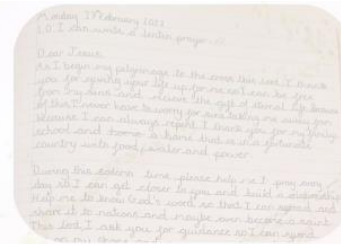 Monday 1 February 2022
LO I can write a lenten prayer
Dear Jesus
As I begin my pilgrimage to the cross this lent, I thank
you for giving your life up for me so I can be free
from my sins and recieve the gift of eternal life. Because
of this I never have to worry for sins taking me away from
because I can always repent. I thank you for my family
school and home- a home that is in a fortunate
country with food, water and power.
During this lenten time, please help me to pray every
day so I can get closer to you and build a relationship
Help me to know God's word so that I can spread and
share it to nations and maybe even become a saint.
This lent I ask you for guidance so I can spend
on my phone and